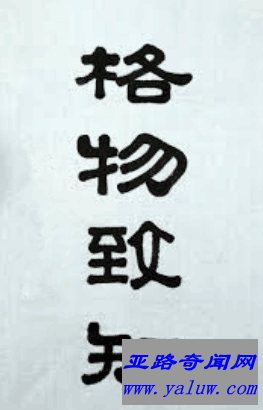 格物致知
亚路奇闻网
www.yaluw.com